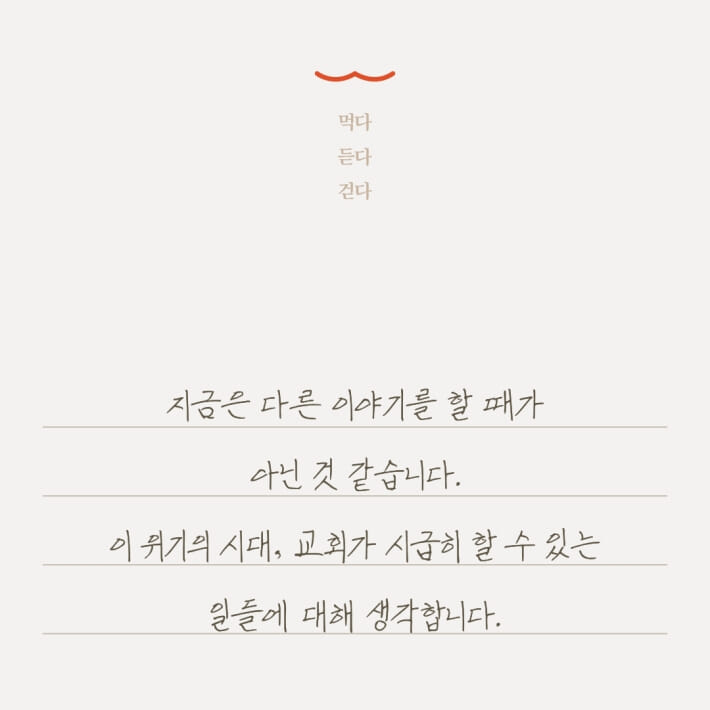 먹다
듣다
걷다
지금은 다른 이야기를 할 때가
아닌 것 같습니다.
이 위기의 시대, 교회가 시급히 할 수 있는
일들에 대해 생각합니다.